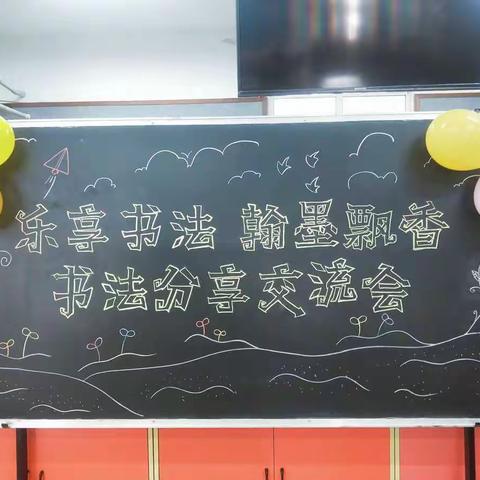 乐享书法 翰墨飘香
书法分享交流会